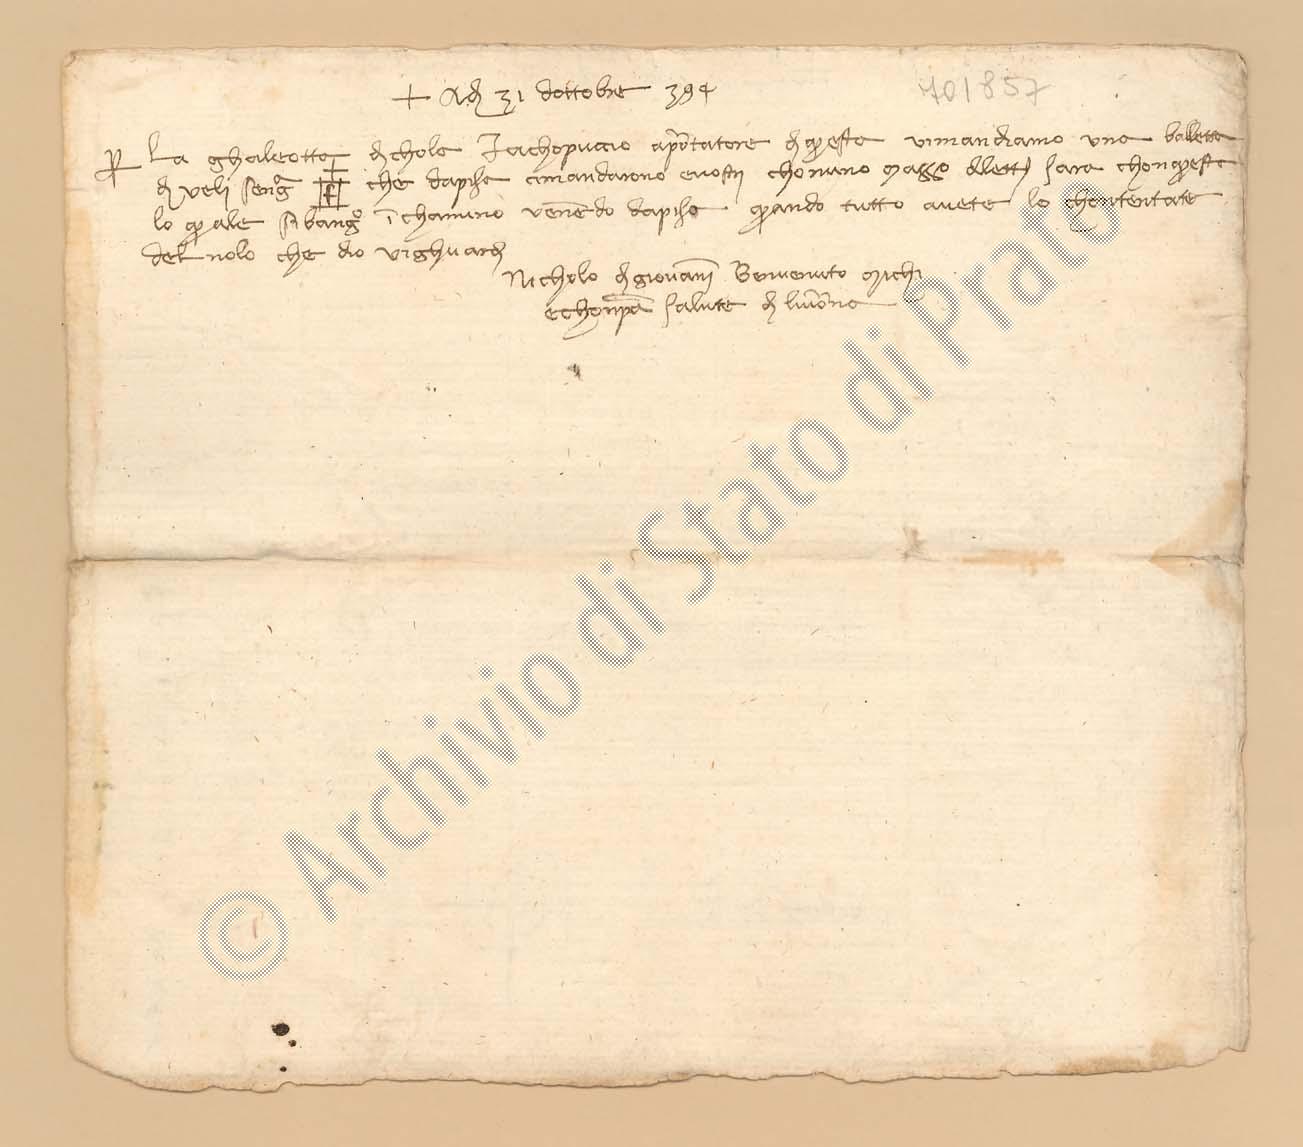 + Adì 31 dottobre 394
701857
Per La ghaleotta di chola Jachopuccio aportatore di questa vimandiamo una balletta
di veli sengn. che dapisa cimandarono evostri chonuno mazzo dilettere sara chonquesta
lo quale si bangno in chamino venendo dapisa quando tutto avete lo chontentate
del nolo che dio vighuardi
Nicholo di giovanni Benvenuto Michi
echonpa. salute di livorno
© Archivio di Stato di Prato